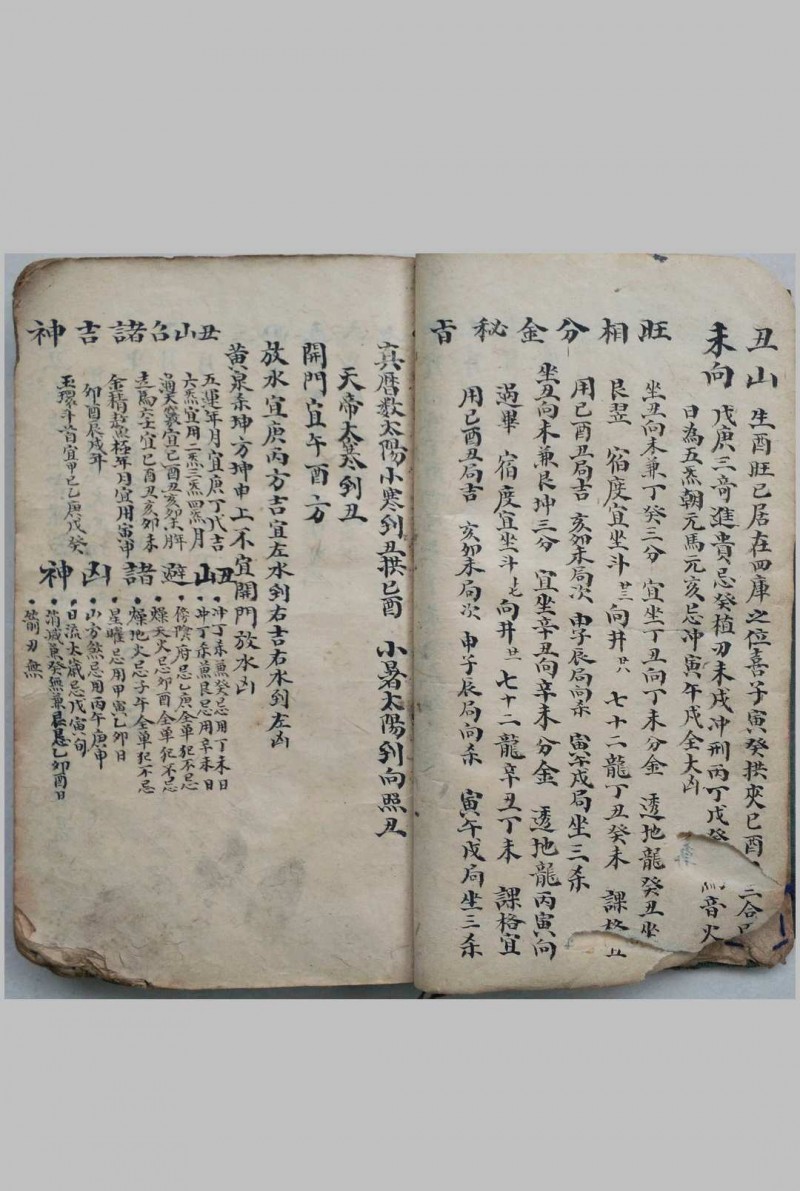 丑山
未向
生酉旺巳居在四庫之位喜子寅癸拱夾巳酉 三合
戊庚三奇進貴忌癸植刃未戌冲刑丙丁戊癸 音火
日為五炁朝元馬元亥忌冲寅午戌全大凶
旺相分金秘旨
坐丑向未兼丁癸三分 宜坐丁丑向丁未分金 透地龍癸丑坐
艮翌 宿度宜坐斗廿三向井廿八 七十二龍丁丑癸未 課格宜
用巳酉丑局吉 亥卯未局次 申子辰局向杀 寅午戌局坐三杀
坐丑向未兼艮坤三分 宜坐辛丑向辛未分金 透地龍丙寅向
過畢 宿度宜坐斗七向井廿一 七十二龍辛丑丁未 課格宜
用巳酉丑局吉 亥卯未局次 申子辰局向杀 寅午戌局坐三杀
真曆数太陽小寒到丑拱巳酉 小暑太陽到向照丑
天帝大寒到丑
開門宜午酉方
放水宜庚丙方吉宜左水到右吉右水到左凶
黄泉杀坤方坤申上不宜開門放水凶
丑山召諸吉神
五運年月宜庚丁戊吉
六炁宜用二炁三炁四炁月
通天竅宜巳酉丑亥卯未年
走馬六壬宜巳酉丑亥卯未
金精鰲極年月宜用寅申
卯酉辰戌年
玉環斗首宜甲己乙庚戊癸
丑山避諸凶神
冲丁未兼癸忌用丁未日
冲丁未兼艮忌用辛未日
傍陰府忌乙庚全单犯不忌
燥天火忌卯酉全单犯不忌
燥地火忌子午全单犯不忌
星曜忌用甲寅乙卯日
山方煞忌用丙午庚申
日流太歲忌戊寅旬
消滅兼癸無兼艮忌乙卯酉日
箭刃無